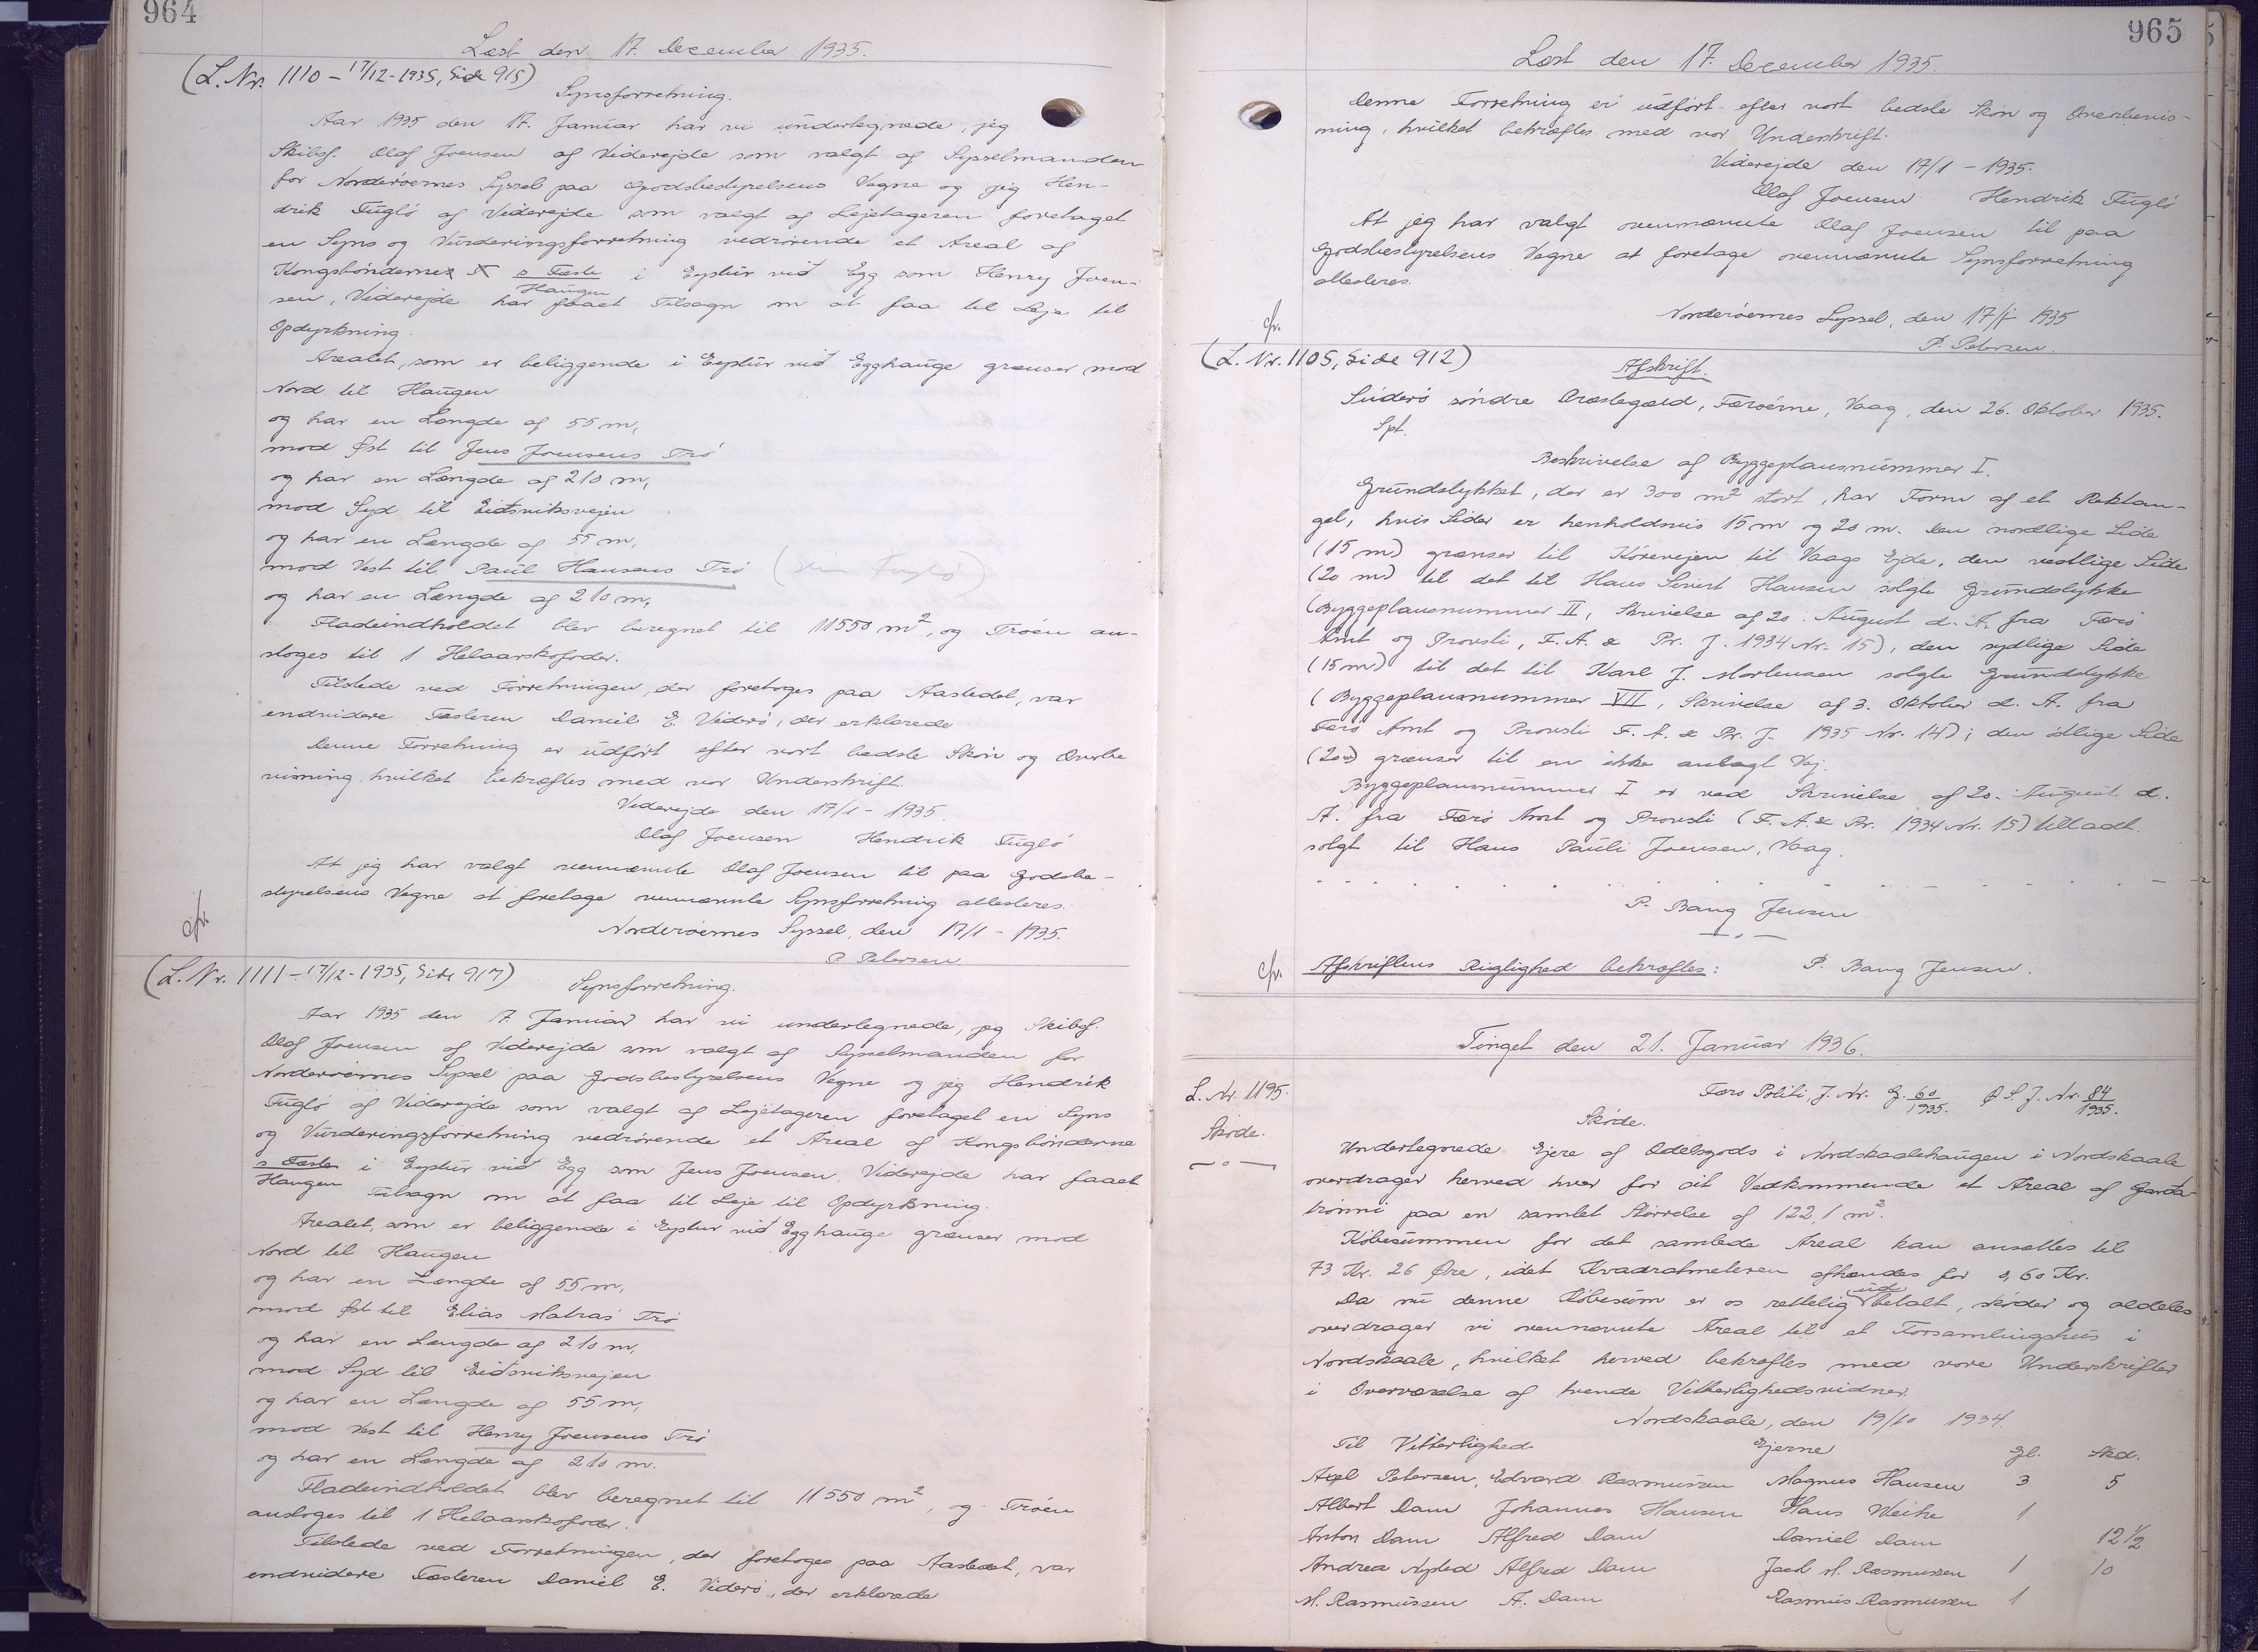 964
Læst den 17. December 1935.
(L. Nr. 1110 - 17/12-1935, Side 915)
Synsforretning.
Aar 1935 den 17. Januar har vi undertegnede, jeg
Skibsf. Olaf Joensen af Viderejde som valgt af Sysselmanden
for Norderøernes Syssel paa Godsbestyrelsens Vegne og jeg Hen-
drik Fuglø af Viderejde som valgt af Lejetageren foretaget
en Syns og Vurderingsforretning vedrørende et Areal af
Kongsbøndernes s Fæste i Eystur við Egg som Henry Joen-
Haugen
sen, Viderejde har faaet Tilsagn om at faa til Leje til
Opdyrkning.
Arealet, som er beliggende i Eystur við Egghauge grænser mod
Nord til Haugen
og har en Længde af 55 m,
mod Øst til Jens Joensens Trø
og har en Længde af 210 m,
mod Syd til Eiðsviksvejen
og har en Længde af 55 m,
mod Vest til Paul Hansens Trø ( Fuglø)
og har en Længde af 210 m,
Fladeindholdet blev beregnet til 11550 m², og Trøen an-
sloges til 1 Helaarskofoder.
Tilstede ved Forretningen, der foretoges paa Aastedet, var
endvidere Fæsteren Daniel E. Viderø, der erklærede
Denne Forretning er udført efter vort bedste Skøn og Overbe
visning, hvilket bekræftes med vor Underskrift.
Viderejde den 17/1 - 1935.
Olaf Joensen Hendrik Fuglø
At jeg har valgt ovennævnte Olaf Joensen til paa Godsbe-
styrelsens Vegne at foretage ovennævnte Synsforretning attesteres.
Norderøernes Syssel, den 17/1 - 1935.
cfr.
P. Petersen
(L. Nr. 1111 - 17/12-1935, Side 917)
Synsforretning.
Aar 1935 den 17. Januar har vi undertegnede, jeg Skibsf.
Olaf Joensen af Viderejde som valgt af Sysselmanden for
Norderøernes Syssel paa Godsbestyrelsens Vegne og jeg Hendrik
Fuglø af Viderejde som valgt af Lejetageren foretaget en Syns
og Vurderingsforretning vedrørende et Areal af Kongsbønderne
s Fæste i Eystur við Egg som Jens Joensen, Viderejde har faaet
Haugen Tilsagn om at faa til Leje til Opdyrkning.
Arealet, som er beliggende i Eystur við Egghauge grænser mod
Nord til Haugen
og har en Længde af 55 m,
mod Øst til Elias Matras Trø
og har en Længde af 210 m,
mod Syd til Eiðsviksvejen
og har en Længde af 55 m,
mod Vest til Henry Joensens Trø
og har en Længde af 210 m.
Fladeindholdet blev beregnet til 11550 m², og Trøen
ansloges til 1 Helaarskofoder.
Tilstede ved Forretningen, der foretoges paa Aastedet, var
endvidere Fæsteren Daniel E. Viderø, der erklærede
965
Læst den 17. December 1935.
Denne Forretning er udført efter vort bedste Skøn og Overbevis-
ning, hvilket bekræftes med vor Underskrift.
Viderejde den 17/1 - 1935.
Olaf Joensen Hendrik Fuglø
At jeg har valgt ovennævnte Olaf Joensen til paa
Godsbestyrelsens Vegne at foretage ovennævnte Synsforretning
attesteres.
Norderøernes Syssel, den 17/1 1935
cfr.
P. Petersen
(L. Nr. 1105, Side 912)
Afskrift.
Suderø søndre Præstegæld, Færøerne, Vaag, den 26. Oktober 1935.
Spt.
Beskrivelse af Byggeplansnummer I.
Grundstykket, der er 300 m² stort, har Form af et Rektan-
gel, hvis Sider er henholdsvis 15 m og 20 m. Den nordlige Side
(15 m) grænser til Kørevejen til Vaags Ejde, den vestlige Side
(20 m) til det til Hans Sivert Hansen solgte Grundstykke
(Byggeplansnummer II, Skrivelse af 20. August d. A. fra Færø
Amt og Provsti, F. A. & Pr. J. 1934 Nr. 15), den sydlige Side
(15 m) til det til Karl J. Mortensen solgte Grundstykke
(Byggeplansnummer VII, Skrivelse af 3. Oktober d. A. fra
Færø Amt og Provsti F. A. & Pr. J. 1935 Nr. 14); den østlige Side
(20 m) grænser til en ikke anlagt Vej.
Byggeplansnummer I er ved Skrivelse af 20. August d.
A. fra Færø Amt og Provsti (F. A. & Pr. 1934 Nr. 15) tilladt
solgt til Hans Pauli Joensen, Vaag.
P. Bang Jensen
cfr.
Afskriftens Rigtighed bekræftes: P. Bang Jensen.
Tinget den 21. Januar 1936.
L. Nr. 1195.
Færø Politi, J. Nr. G. 60/1935. Ø S. J. Nr. 84/1935.
Skøde.
Skøde.
Undertegnede Ejere af Odelsgods i Nordskaalehaugen i Nordskaale
overdrager herved hver for sit Vedkommende et Areal af Garða-
trønni paa en samlet Størrelse af 122,1 m².
Købesummen for det samlede Areal kan ansættes til
73 Kr. 26 Øre, idet Kvadratmeteren afhændes for 0,60 Kr.
Da nu denne Købesum er os rettelig betalt, skøder og aldeles
ud
overdrager vi ovennævnte Areal til et Forsamlingshus i
Nordskaale, hvilket herved bekræftes med vore Underskrifter
i Overværelse af tvende Vitterlighedsvidner.
Nordskaale, den 19/10 1934.
Til Vitterlighed Ejerne Gl. Skd.
Axel Petersen, Edvard Rasmussen Magnus Hansen 3 5
Albert Dam Johannes Hansen Hans Weihe 1
Anton Dam Alfred Dam Daniel Dam 12 1/2
Andrea Alfred Dam M. Rasmussen 1 10
M. Rasmussen A. Dam Rasmus Rasmussen 1